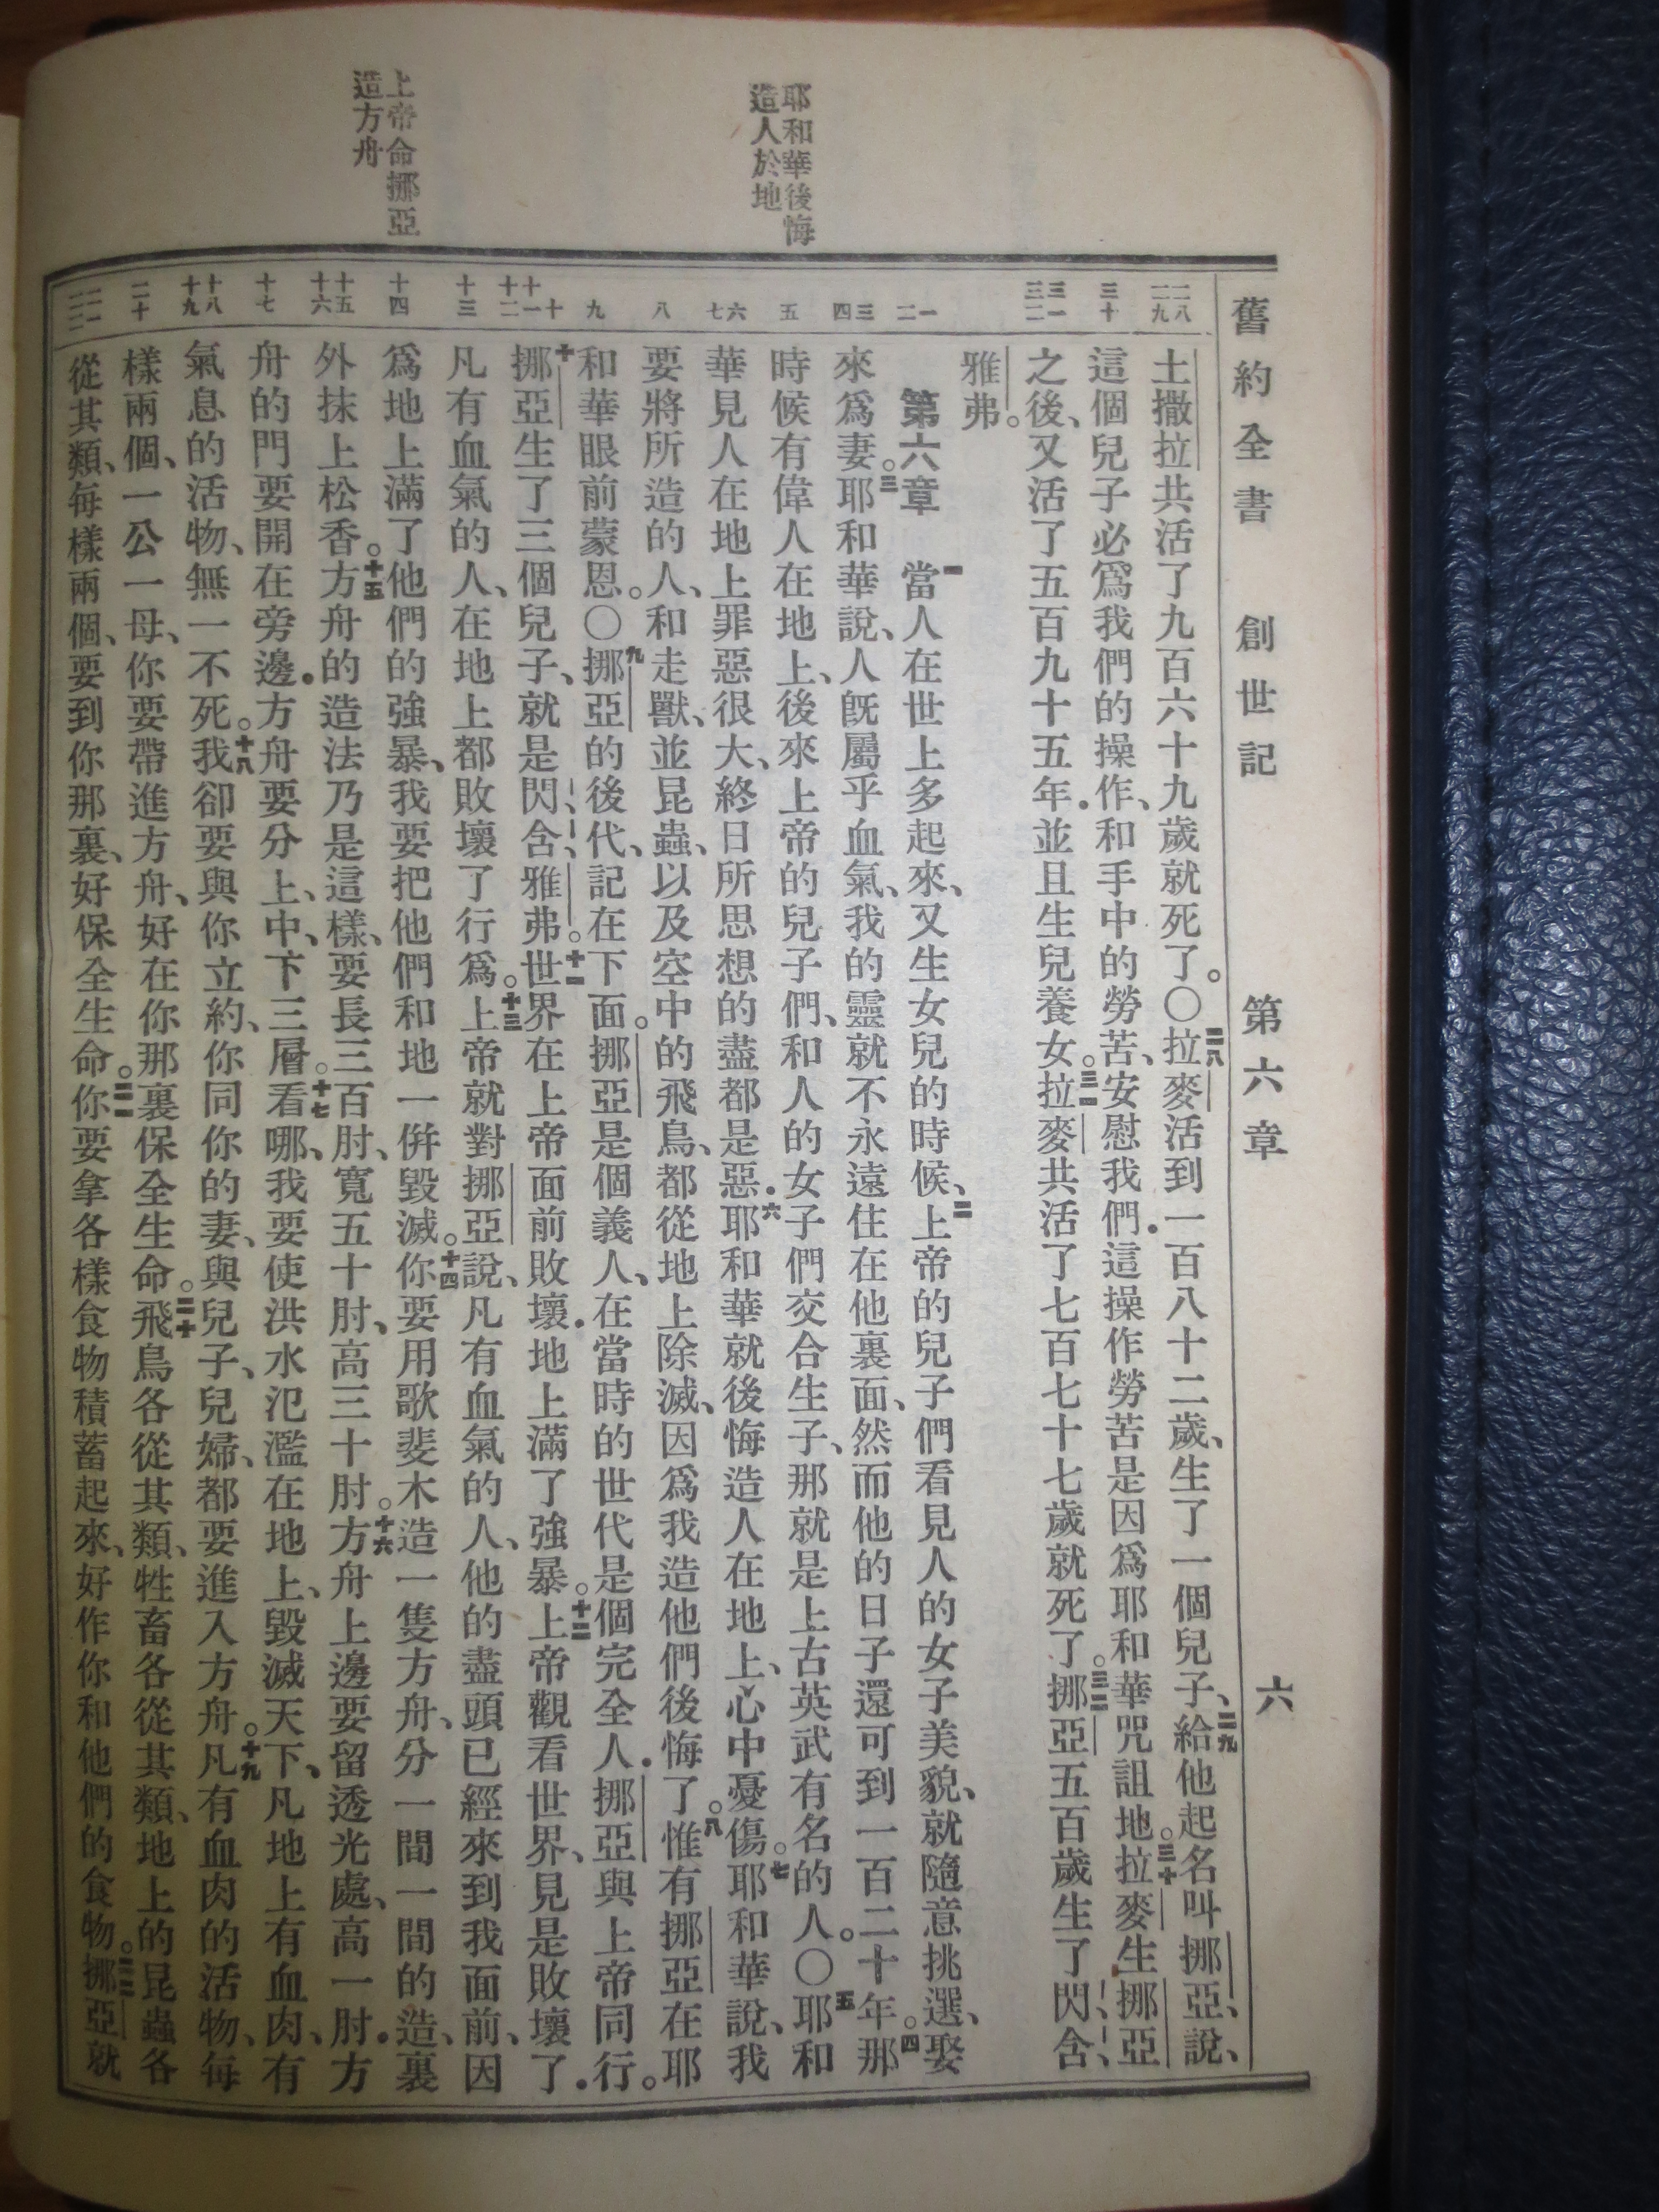 舊約全書 創世記 第六章 六
耶和華後悔
造人於地
上帝命挪亞
造方舟
二八
二九
三十
三一
三二
一
二
三
四
五
六
七
八
九
十
十一
十二
十三
十四
十五
十六
十七
十八
十九
二十
二一
二二
土撒拉共活了九百六十九歲就死了。〇二八拉麥活到一百八十二歲、生了一個兒子、二九給他起名叫挪亞、說、
這個兒子必爲我們的操作、和手中的勞苦、安慰我們．這操作勞苦是因爲耶和華咒詛地。三十拉麥生挪亞
之後、又活了五百九十五年．並且生兒養女。三一拉麥共活了七百七十七歲就死了。三二挪亞五百歲生了閃、含、
雅弗。
第六章 一當人在世上多起來、又生女兒的時候、二上帝的兒子們看見人的女子美貌、就隨意挑選、娶
來爲妻。三耶和華說、人既屬乎血氣、我的靈就不永遠住在他裏面、然而他的日子還可到一百二十年。四那
時候有偉人在地上、後來上帝的兒子們、和人的女子們交合生子、那就是上古英武有名的人。〇五耶和
華見人在地上罪惡很大、終日所思想的盡都是惡．六耶和華就後悔造人在地上、心中憂傷。七耶和華說、我
要將所造的人、和走獸、並昆蟲、以及空中的飛鳥、都從地上除滅、因爲我造他們後悔了。八惟有挪亞在耶
和華眼前蒙恩。〇九挪亞的後代、記在下面。挪亞是個義人、在當時的世代是個完全人．挪亞與上帝同行。
十挪亞生了三個兒子、就是閃、含、雅弗。十一世界在上帝面前敗壞．地上滿了強暴。十二上帝觀看世界、見是敗壞了．
凡有血氣的人、在地上都敗壞了行爲。十三上帝就對挪亞說、凡有血氣的人、他的盡頭已經來到我面前、因
爲地上滿了他們的強暴、我要把他們和地一併毀滅。十四你要用歌斐木造一隻方舟、分一間一間的造、裏
外抹上松香。十五方舟的造法乃是這樣、要長三百肘、寬五十肘、高三十肘。十六方舟上邊要留透光處、高一肘．方
舟的門要開在旁邊．方舟要分上、中、下三層。十七看哪、我要使洪水氾濫在地上、毀滅天下、凡地上有血肉、有
氣息的活物、無一不死。十八我卻要與你立約、你同你的妻、與兒子、兒婦、都要進入方舟。十九凡有血肉的活物、每
樣兩個、一公一母、你要帶進方舟、好在你那裏保全生命。二十飛鳥各從其類、牲畜各從其類、地上的昆蟲各
從其類、每樣兩個、要到你那裏、好保全生命。二一你要拿各樣食物積蓄起來、好作你和他們的食物。二二挪亞就